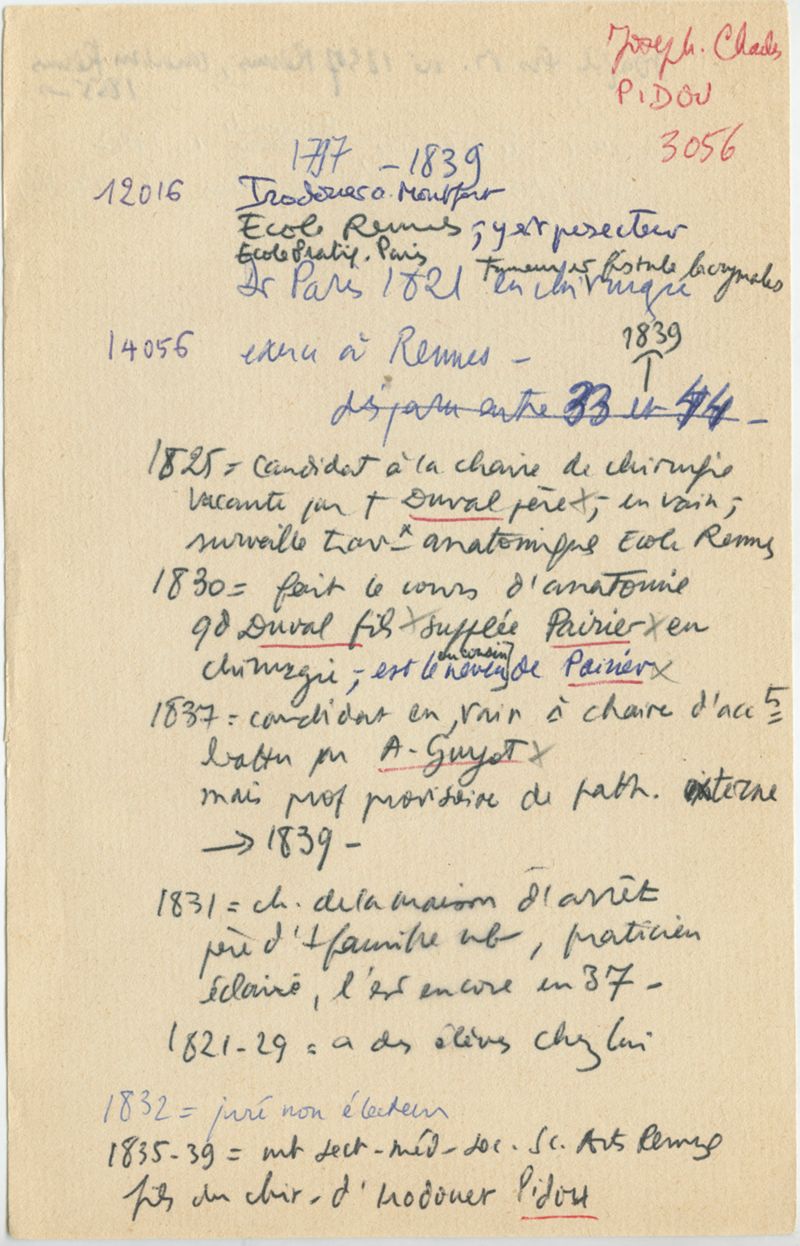 Joseph. Charles
PIDOU
3056
1797 - 1839
12016 Irodouer a. Montfort
Ecole Rennes, y est prosecteur
Ecole Pratiq. Paris
Tumeur et fistule lacrymales
Dr Paris 1821 en chirurgie
14056 exerce à Rennes -
1839
disparu entre 33 et 44 -
1825 = candidat à la chaire de chirurgie
vacante par † Duval père x, en vain,
surveille travx anatomique Ecole Rennes
1830 = fait le cours d'anatomie
qd Duval fils x supplée Poirier x en
chirurgie, est le neveu de Poirier x
ou cousin
1837 = candidat en vain à chaire d'acc5
battu par A. Guyot x
mais prof provisoire de path. externe
→ 1839 -
1831 = ch. de la maison d'arrêt
père d'1 famille nb, praticien
éclairé, l'est encore en 37 -
1821-29 = a des élèves chez lui
1832 = juré non électeur
1835-39 = mb sect-méd-soc. Sc. Arts Rennes
fils du chir. d'Irodouer Pidou